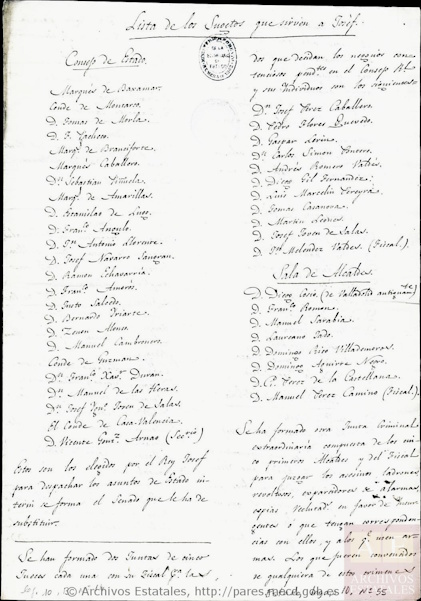 Lista de los Sugetos que sirven a Josef.
Consejo de Estado.
Marques de Baxamar.
Conde de Montarco.
D. Tomas de Morla.
D. F. Zacheco.
Marqs. de Branciforte.
Marqs. Caballero.
Dn. Sebastian Piñuela.
Marqs. de Amarillas.
D. Estanislao de Lugo.
D. Franco. Angulo.
D. Jn. Antonio Llorente.
D. Josef Navarro Sangran.
D. Ramon Echavarria.
D. Franco. Amorós.
D. Justo Salcedo.
D. Bernardo Iriarte.
D. Zenon Alonso.
D. Manuel Cambronero.
Conde de Guzman.
Dn. Franco. Xavr. Duran.
Dn. Manuel de las Heras.
Dn. Josef Ignº. Joven de Salas.
El Conde de Casa-Valencia.
D. Vicente Gonz. Arnao (Secrio.)
Estos son los elegidos por el Rey Josef
para despachar los asuntos de Estado in-
terin se forma el Senado que le ha de
substituir.
Se han formado dos Juntas de cinco
Jueces cada una con su Fiscal pa. las
dos que decidan los negocios con-
tenciosos pendtes. en el Consejo Rl.
y sus individuos son los siguientes
Dn. Josef Perez Caballero.
D. Pedro Flores Quevedo.
D. Gaspar Lerin.
Dn. Carlos Simon Pontero.
D. Andrés Romero Valdés.
D. Diego Gil Fernandez.
D. Luis Marcelin Pereyra.
D. Tomas Casanova.
D. Martin Leones.
D. Josef Joven de Salas.
D. Jn. Melendez Valdes (Fiscal.)
Sala de Alcaldes.
D. Diego Cosio, (de Valladolid antiguamte.)
D. Franco. Romeu.
D. Manuel Sarabia.
D. Laureano Jado.
D. Domingo Rico Villademoros.
D. Domingo Aguirre
D. Co. Perez de la Castellana.
D. Manuel Perez Camino (Fiscal.)
Se ha formado otra Junta Criminal
extraordinaria compuesta de los cin-
co primeros Alcaldes y del Fiscal
para juzgar los asesinos ladrones
revoltosos, esparcidores de alarmas,
espias, reclutads. en favor de Insur-
gentes ó que tengan corresponden-
cias con ellos, y a los qe. usen ar-
mas. Los que fueren convencidos
de qualquiera de estos crimenes
© Archivos Estatales, http://pares.mecd.gob.es